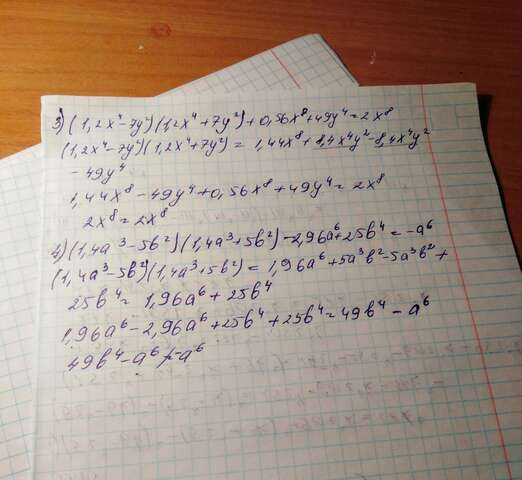 3) (1,2x⁴-7y²)(1,2x⁴+7y²)+0,56x⁸+49y⁴=2x⁸
(1,2x⁴-7y²)(1,2x⁴+7y²)=1,44x⁸+8,4x⁴y²-8,4x⁴y²
-49y⁴
1,44x⁸-49y⁴+0,56x⁸+49y⁴=2x⁸
2x⁸=2x⁸
4) (1,4a³-5b²)(1,4a³+5b²)-2,96a⁶+25b⁴=-a⁶
(1,4a³-5b²)(1,4a³+5b²)=1,96a⁶+5a³b²-5a³b²+
25b⁴=1,96a⁶+25b⁴
1,96a⁶-2,96a⁶+25b⁴+25b⁴=49b⁴-a⁶
49b⁴-a⁶≠-a⁶